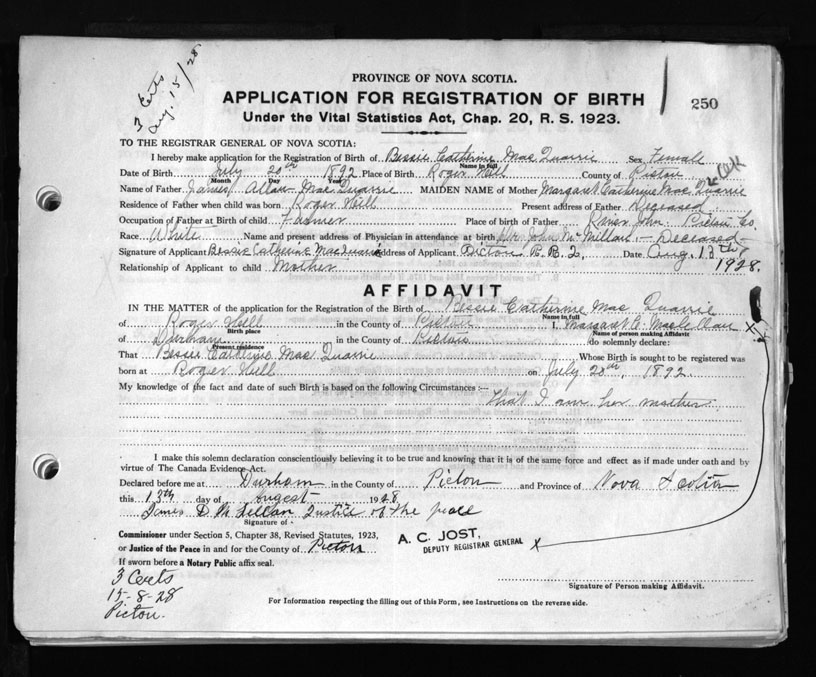 3 Certs
Aug. 15/28
PROVINCE OF NOVA SCOTIA.
APPLICATION FOR REGISTRATION OF BIRTH
250
Under the Vital Statistics Act, Chap. 20, R. S. 1923.
TO THE REGISTRAR GENERAL OF NOVA SCOTIA:
I hereby make application for the Registration of Birth of Bessie Catherine Mac Quarrie Sex Female
Name in full
Date of Birth July 20th 1892 Place of Birth Roger Hill County of Pictou
Month Day Year
Name of Father James Allan Mac Quarrie MAIDEN NAME of Mother Margaret Catherine Mac Quarrie
Residence of Father when child was born Roger Hill Present address of Father Deceased
Occupation of Father at Birth of child Farmer Place of birth of Father River John Pictou Co.
Race White Name and present address of Physician in attendance at birth Dr. John McMillan - Deceased
Signature of Applicant Bessie Catherine MacQuarrie Address of Applicant Picton R.R.2, Date Aug. 13th
1928.
Relationship of Applicant to child Mother
AFFIDAVIT
IN THE MATTER of the application for the Registration of the Birth of Bessie Catherine Mac Quarrie
Name in full
of Roger Hill in the County of Pictou I, Margaret C. MacLellan X
Birth place Name of person making Affidavit
of Durham in the County of Pictou do solemnly declare:
Present residence
That Bessie Catherine Mac Quarrie Whose Birth is sought to be registered was
born at Roger Hill on July 20th, 1892
My knowledge of the fact and date of such Birth is based on the following Circumstances :—
that I am her mother
I make this solemn declaration conscientiously believing it to be true and knowing that it is of the same force and effect as if made under oath and by
virtue of The Canada Evidence Act.
Declared before me at Durham in the County of Picton and Province of Nova Scotia
this 13th day of August 1928
James D McLellan Justice of the peace
Signature of
Commissioner under Section 5, Chapter 38, Revised Statutes, 1923,
or Justice of the Peace in and for the County of Picton
A. C. JOST,
DEPUTY REGISTRAR GENERAL X
If sworn before a Notary Public affix seal.
Signature of Person making Affidavit.
3 Certs
15-8-28
Picton.
For Information respecting the filling out of this Form, see Instructions on the reverse side.